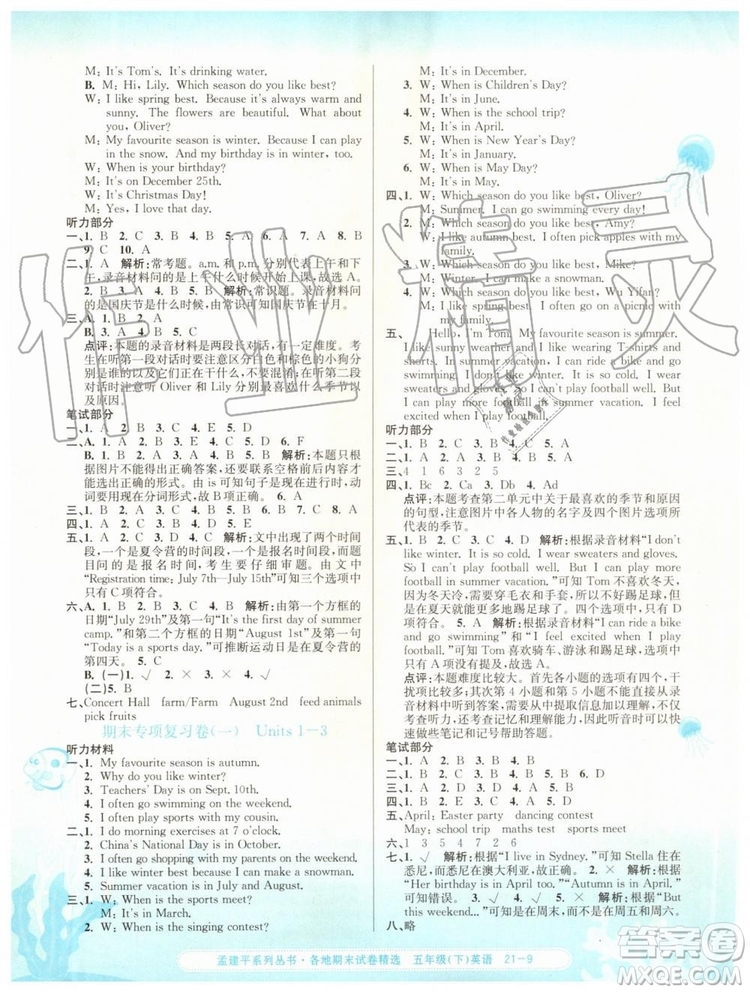 M: It's Tom's. It's drinking water.
B. M: Hi, Lily. Which season do you like best?
W: I like spring best. Because it's always warm and
sunny. The flowers are beautiful. What about
you, Oliver?
M: My favourite season is winter. Because I can play
in the snow. And my birthday is in winter.
W: When is your birthday?
M: It's on December 25th.
W: It's Christmas Day!
M: Yes, I love that day.
听力部分
一、1. B 2. C 3. B 4. C 5. A 6. A 7. A 8. B
9. C 10. A
二、1. A 解析:常考题。a.m. 和 p.m. 分别代表上午和下
午。录音材料问的是上午什么时候开始上课,故选 A。
2. B 3. B 4. B 5. C 解析:常识题。录音材料问
的是国庆节是什么时候,由常识可知国庆节在十月。
三、A. 1. C 2. A
B. 3. A 4. B 5. C
点评:本题的录音材料是两段长对话,有一定难度。考
生在听第一段对话时要注意分别白色和棕色的小狗分
别是在做什么,不要混淆;在听第二段
对话时注意听 Oliver 和 Lily 分别最喜欢什么季节以
及原因。
笔试部分
一、1. A 2. D 3. C 4. E 5. D
二、1. A 2. B 3. D 4. E 5. C 6. F
三、1. B 2. A 3. B 4. B 5. B 解析:本题不能只
根据图片给出正确答案,应联系空格前后的单词给出
正确选项。由 is 可知句子是现在进行时态,因此,动
词要用现在分词形式,故选 B。
四、1. C 2. A 3. B 4. D 5. E
五、1. B 2. A 3. B 4. C 解析:文中出现了两个时间
段,一个是夏令营的时间段,一个是报名时间段。由文
中“Registration time: July 7th—July 15th”可知三个选项中
只有 C 项符合。
六、A. 1. B 2. A 3. B 4. B 解析:由第一个方框的
日期“July 29th”及第一句“It's the first day of summer
camp.”和第二个方框的日期“August 1st”及第一句
“Today is a sports day.”可推断运动日是在夏令营的
第四天。 5. C
B. (一)1. √ 2. × 3. × 4. √
(二)5. B
七、Concert Hall farm/Farm August 2nd feed animals
pick fruits
期末专项复习卷(一) Units 1—3
听力材料
一、1. My favourite season is autumn.
2. Why do you like winter?
3. Teachers' Day is on Sept. 10th.
4. I often go swimming on the weekend.
5. I often play sports with my cousin.
二、1. I do morning exercises at 7 o'clock.
2. China's National Day is in October.
3. I often go shopping with my parents on the weekend.
4. I like winter because I can make a snowman.
5. Summer vacation is in July and August.
三、1. W: When is the sports meet?
M: It's in March.
2. W: When is the singing contest?
M: It's in December.
3. W: When is Children's Day?
M: It's in June.
4. W: When is the school trip?
M: It's in April.
5. W: When is New Year's Day?
M: It's in January.
6. W: When is May Day?
M: It's in May.
四、1. W: Which season do you like best, Oliver?
M: Summer. I can go swimming every day!
2. W: Which season do you like best, Amy?
M: Autumn. I can pick apples with my
family.
3. W: Which season do you like best, Mike?
M: Winter. I can make a snowman.
4. W: Which season do you like best, Wu Yifan?
M: Spring. I can go on a picnic with
my family.
五、 Hello, I'm Tom. My favourite season is summer.
I like sunny weather and I like wearing T-shirts and
shorts. In summer, I can ride a bike and go
swimming. But I can't play football well. I don't like
winter. It is so cold. I wear sweaters and gloves. So
I can't play football well. But I can play more
football in summer vacation. I can play football. I
feel excited when I play football.
听力部分
一、1. B 2. C 3. C 4. B 5. A
二、1. B 2. C 3. B 4. A 5. A
三、4 1 6 3 2 5
四、1. Bc 2. Ca 3. Db 4. Ad
点评:本题考查第二单元中关于最喜欢的季节和原因
的句型,注意图片中各人物的名字及四个图片选项所
代表的季节。
五、1. B 2. C 3. B 4. C 解析:根据录音材料“I don't
like winter. It is so cold. I wear sweaters and gloves.
So I can't play football well. But I can play more
football in summer vacation.”可知 Tom 不喜欢冬天,
因为冬天很冷,要穿毛衣和手套,所以不好踢足球。但
是在暑假他可以更多地踢足球。三个选项中只有 C 项
符合。 5. A 解析:根据录音材料“I can ride a bike
and go swimming”和“I feel excited when I play
football.”可知 Tom 喜欢骑车、游泳和踢足球。
难度比较大。第 4 题和第 5 题需要考生根据
录音材料分析出答案。考生在听的时候要特别注意听
细节,此外,还考查记忆和理解能力。考生在听的时候
做一些笔记和记号帮助答题。
笔试部分
一、1. A 2. B 3. D 4. C 5. C
二、1. A 2. B 3. C 4. A 5. A
三、1. B 2. A 3. B 4. C 5. C
四、1. C 2. D 3. A 4. B 5. E
五、April: Easter party dancing contest
May: school trip maths test sports meet
六、1 3 4 5 2
七、1. √ 解析:根据“I live in Sydney.”可知 Stella 住在
悉尼,而悉尼在澳大利亚,故正确。 2. × 解析:根据
“Her birthday is in April too.”“Autumn is in April.”可
知错误。 3. × 4. √ 5. × 解析:根据“But
this weekend ...”可知是在周末,而不是在周五、周六。
八、略
孟建平系列丛书·各地期末试卷精选 五年级(下)英语 21—9
作业精灵
答案圈